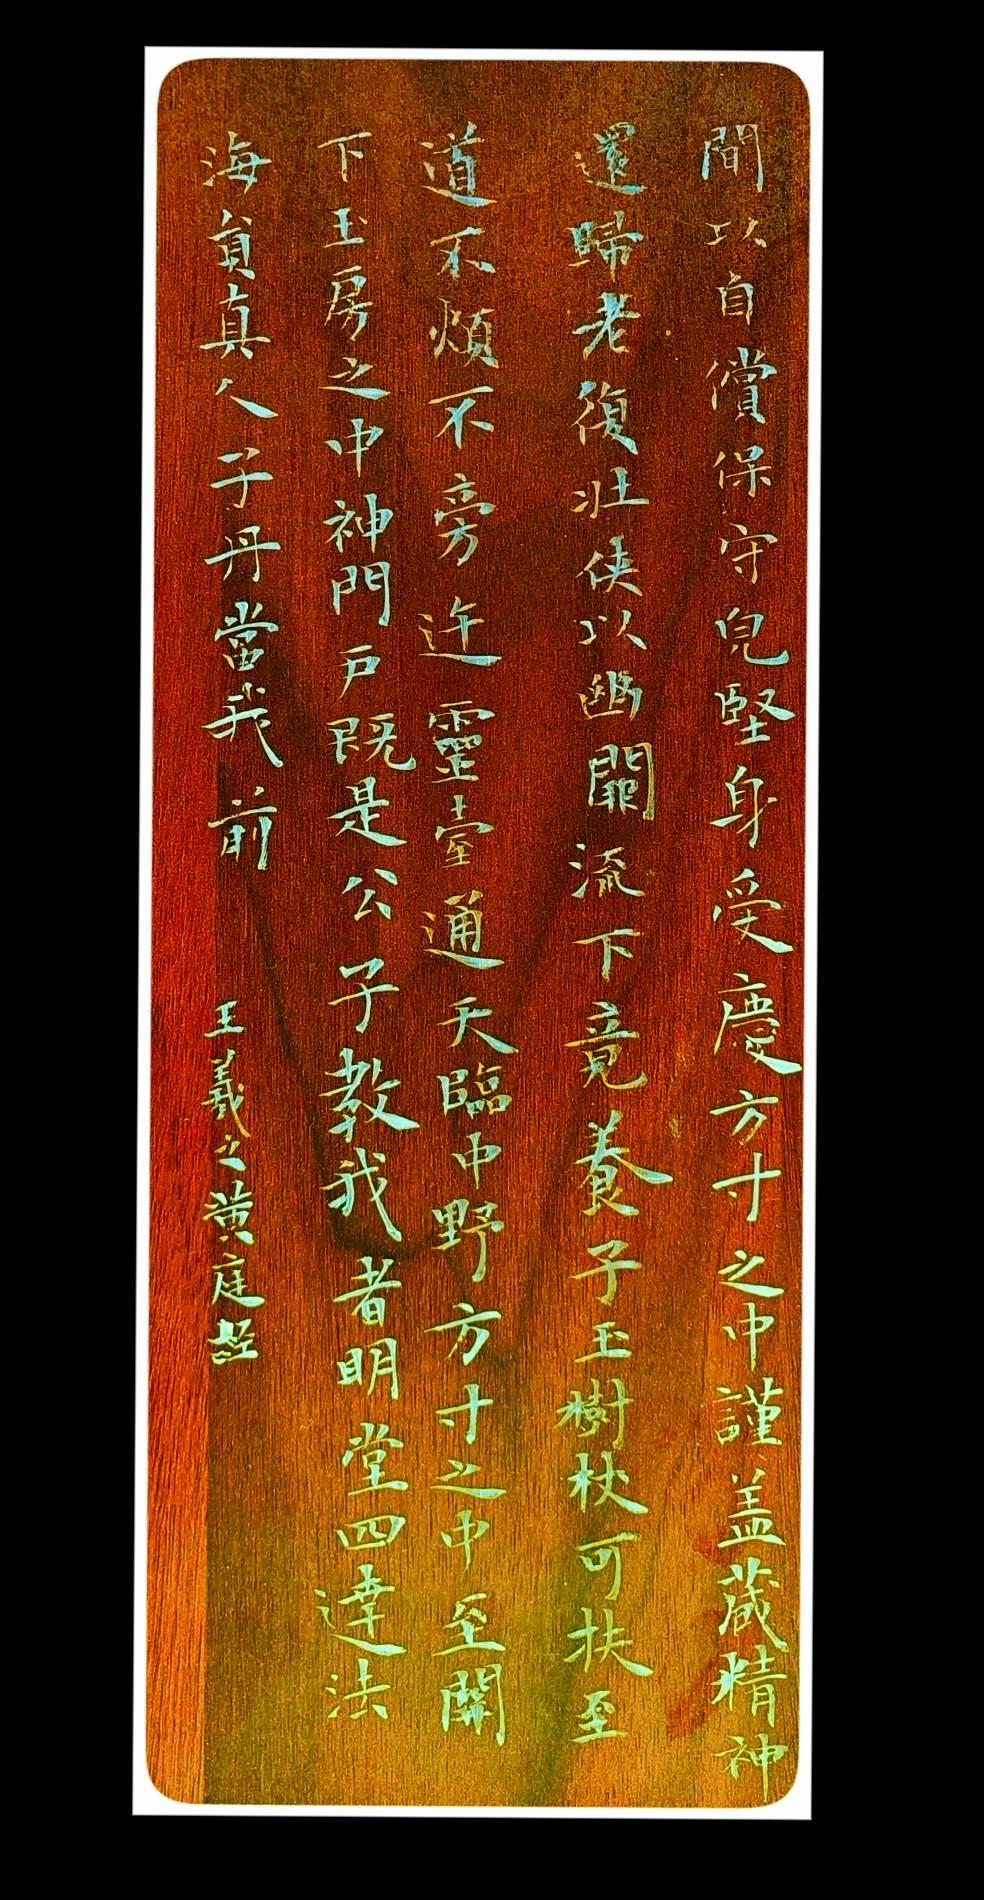 間以自償保守皃堅身受慶方寸之中謹盖蔵精神
還歸老復壮侠以幽闕流下竟養子玉樹杖可扶至
道不煩不旁迕靈臺通天臨中野方寸之中至關
下玉房之中神門戸既是公子教我者明堂四達法
海貟真人子丹當我前
王羲之黄庭経